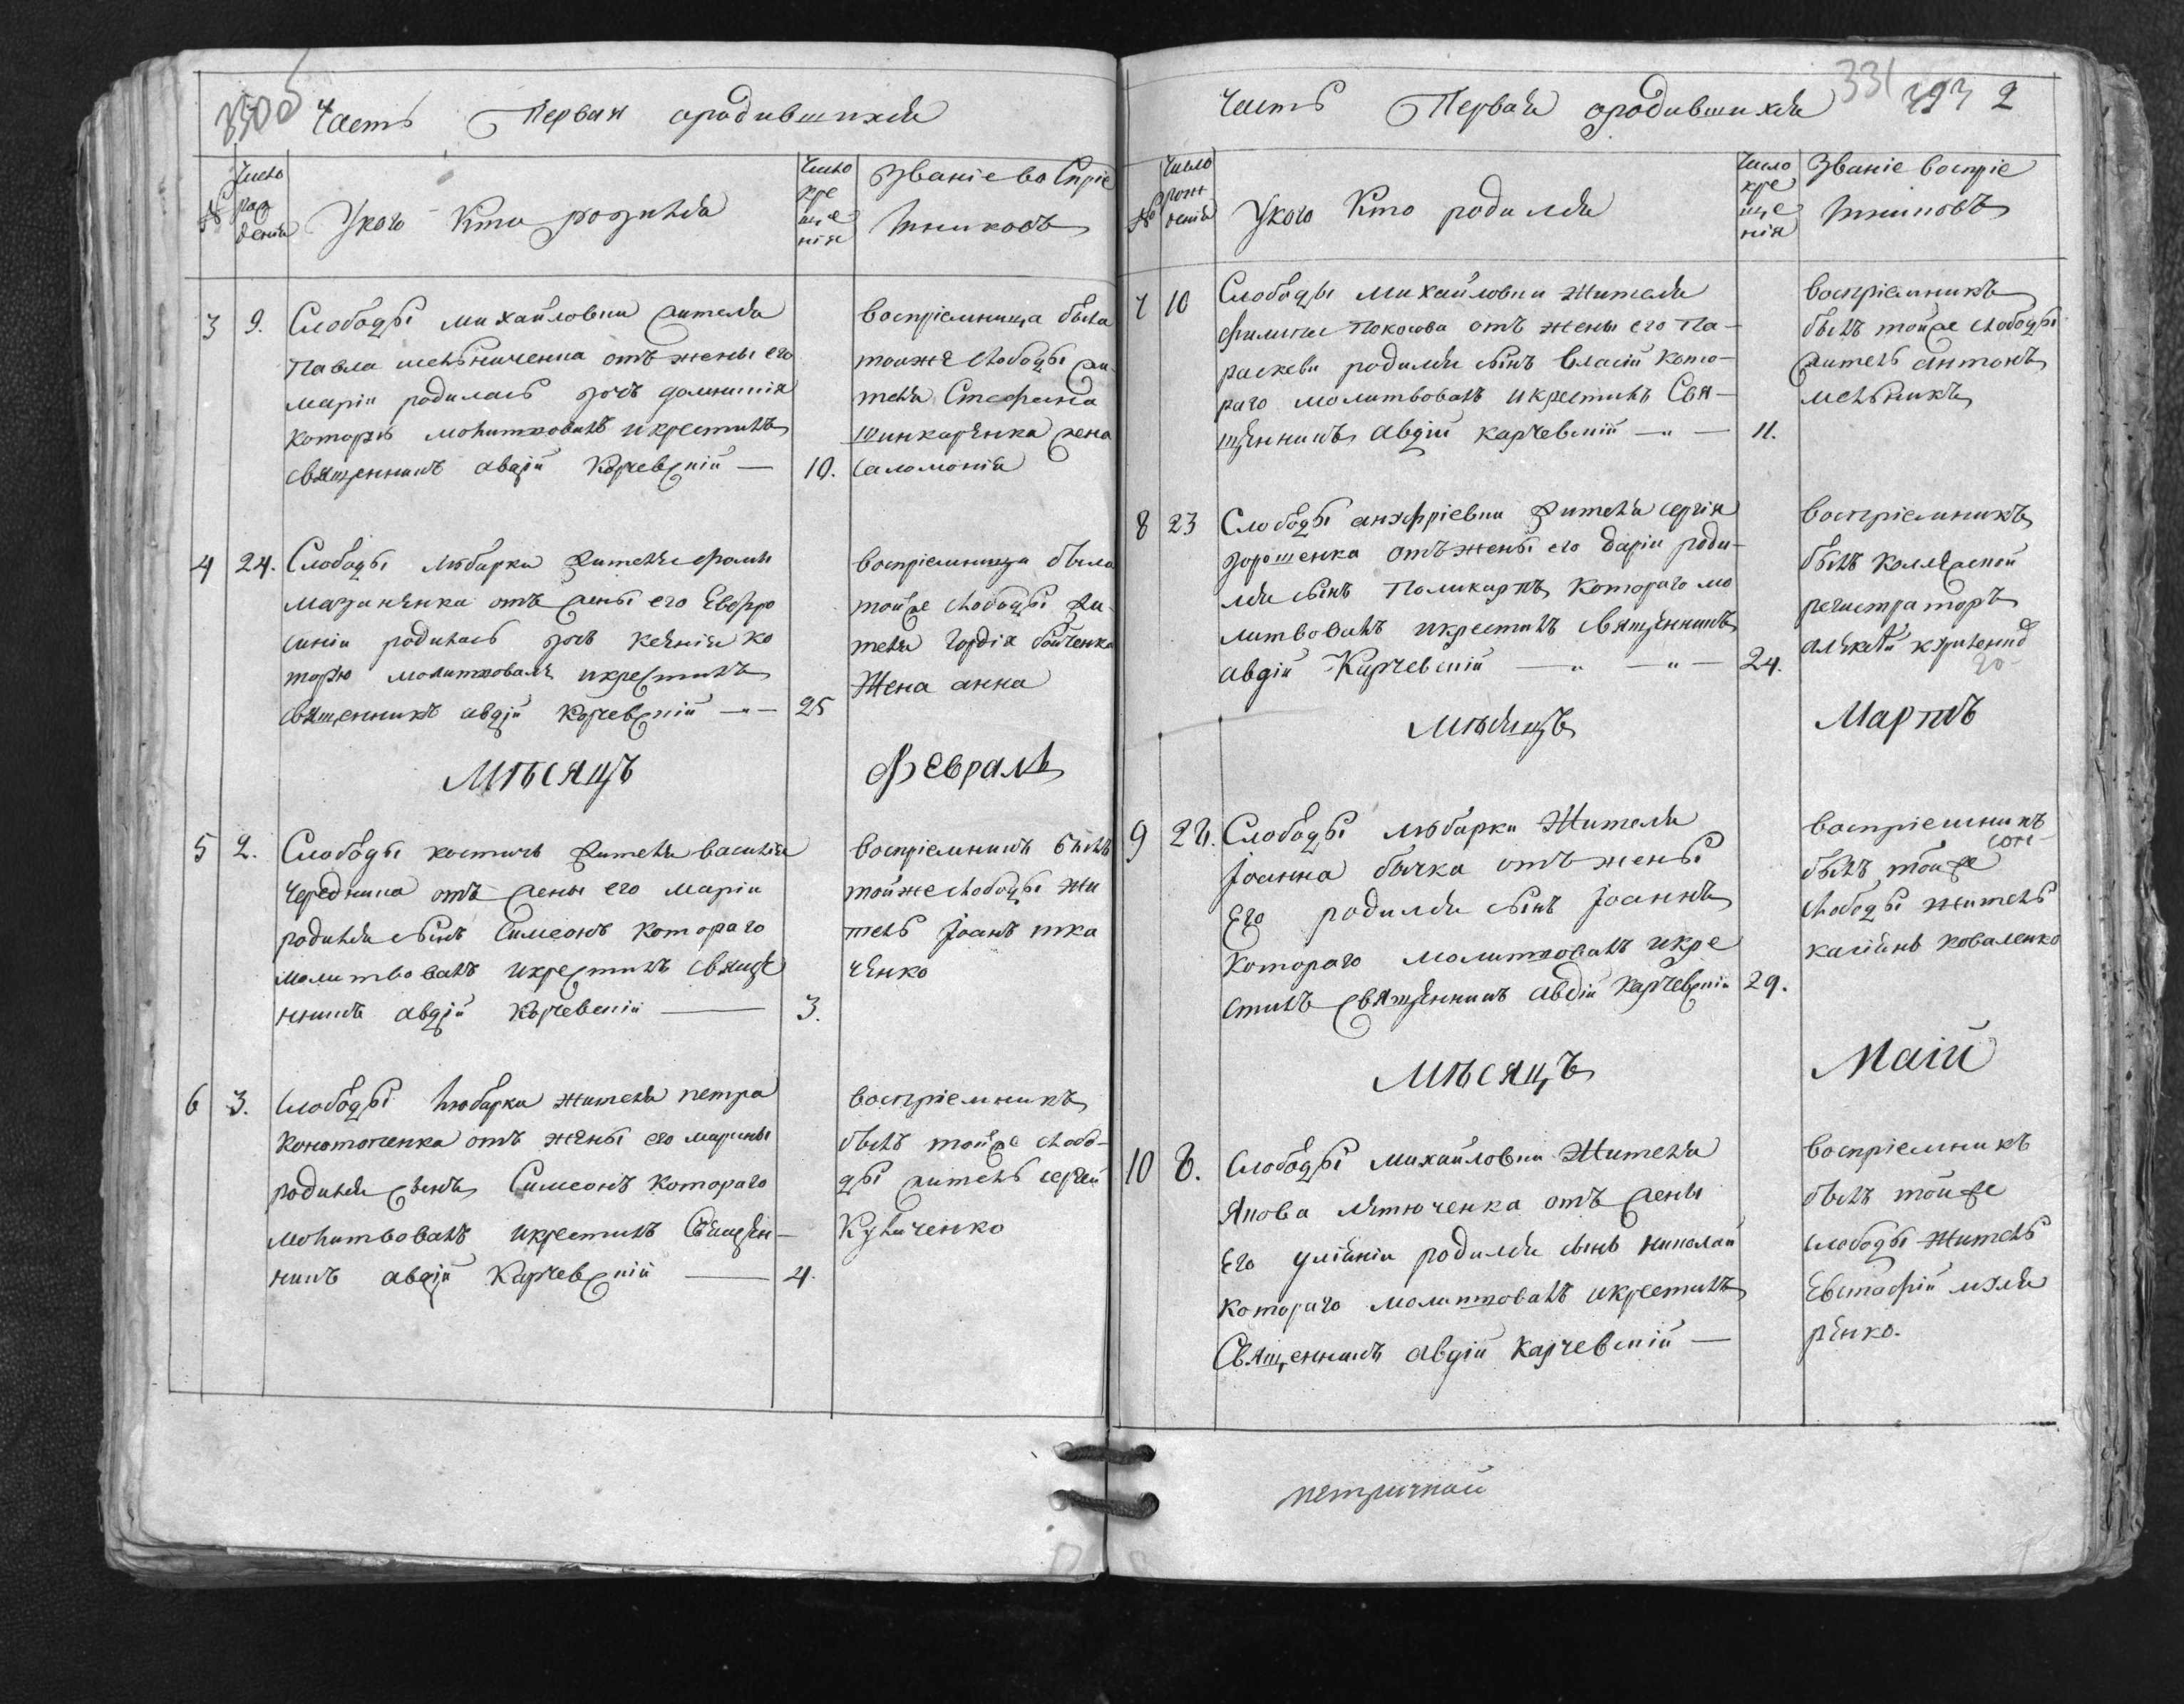 330об
Часть Первая ородившихся
№
Число рождения
Укого Кто родился
Число крещенія
Званіе воспріемниковъ
3 9. Слободы михайловки жителя
Павла мельниченка отъ жены его
маріи родилась дочь домникія
которую молитвовалъ икрестилъ
священникъ авдій Карчевскій — 10.
воспріемница была
тойже слободы жи
теля Стефана
шинкаренка жена
саломонія
4 24. Слободы любарки жителя фомы
мазаненка отъ жены его Евфро
синіи родилась дочь ксенія ко
торую молитвовалъ икрестилъ
священникъ авдій Карчевскій — 25
воспріемница была
тойже слободы жи
теля гордія бойченка
жена анна
Мѣсяцъ Февраль
5 2. Слободы костичь жителя василія
Чередника отъ жены его маріи
родился сынъ Симеонъ котораго
молитвовалъ икрестилъ священ
никъ авдій Карчевскій — 3.
воспріемникъ былъ
тойже слободы жи
тель Іоанъ тка
ченко
6 3. слободы любарки жителя петра
конотопенка отъ жены его марины
родился сынъ Симеонъ котораго
молитвовалъ икрестилъ Священ-
никъ авдій Карчевскій — 4.
воспріемникъ
былъ тойже слобо-
ды житель сергій
Куличенко
331 393 2
Часть Первая ородившихся
№
Число рожденія
Укого Кто родился
Число крещенія
Званіе воспріемниковъ
7 10 Слободы михайловки жителя
филипа покосова отъ жены его Па-
раскеви родился сынъ власій кото-
раго молитвовалъ икрестилъ Свя-
щенникъ авдій карчевскій — 11.
воспріемникъ
былъ тойже слободы
житель антонъ
мельникъ
8 23 Слободы анофріевки жителя сергія
дорошенка отъ жены его даріи роди-
лся сынъ Поликарпъ котораго мо
литвовалъ икрестилъ священникъ
авдій Карчевскій — 24.
воспріемникъ
былъ коллежской
регистраторъ
алексѣй
Мѣсяцъ Мартъ
9 28. Слободы любарки Жителя
Іоанна бычка отъ жены
Его родился сынъ Іоаннъ
котораго молитвовалъ икре
стилъ священникъ авдій карчевскій 29.
воспріемникъ
былъ тойже
слободы житель
касіянъ коваленко
Мѣсяцъ Маій
10 8. слободы михайловки Жителя
Якова отъ жены
Его уліяніи родился сынъ николай
котораго молитвовалъ икрестилъ
Священникъ авдій карчевскій —
воспріемникъ
былъ тойже
слободы житель
Евстафій
ренко.
метричной